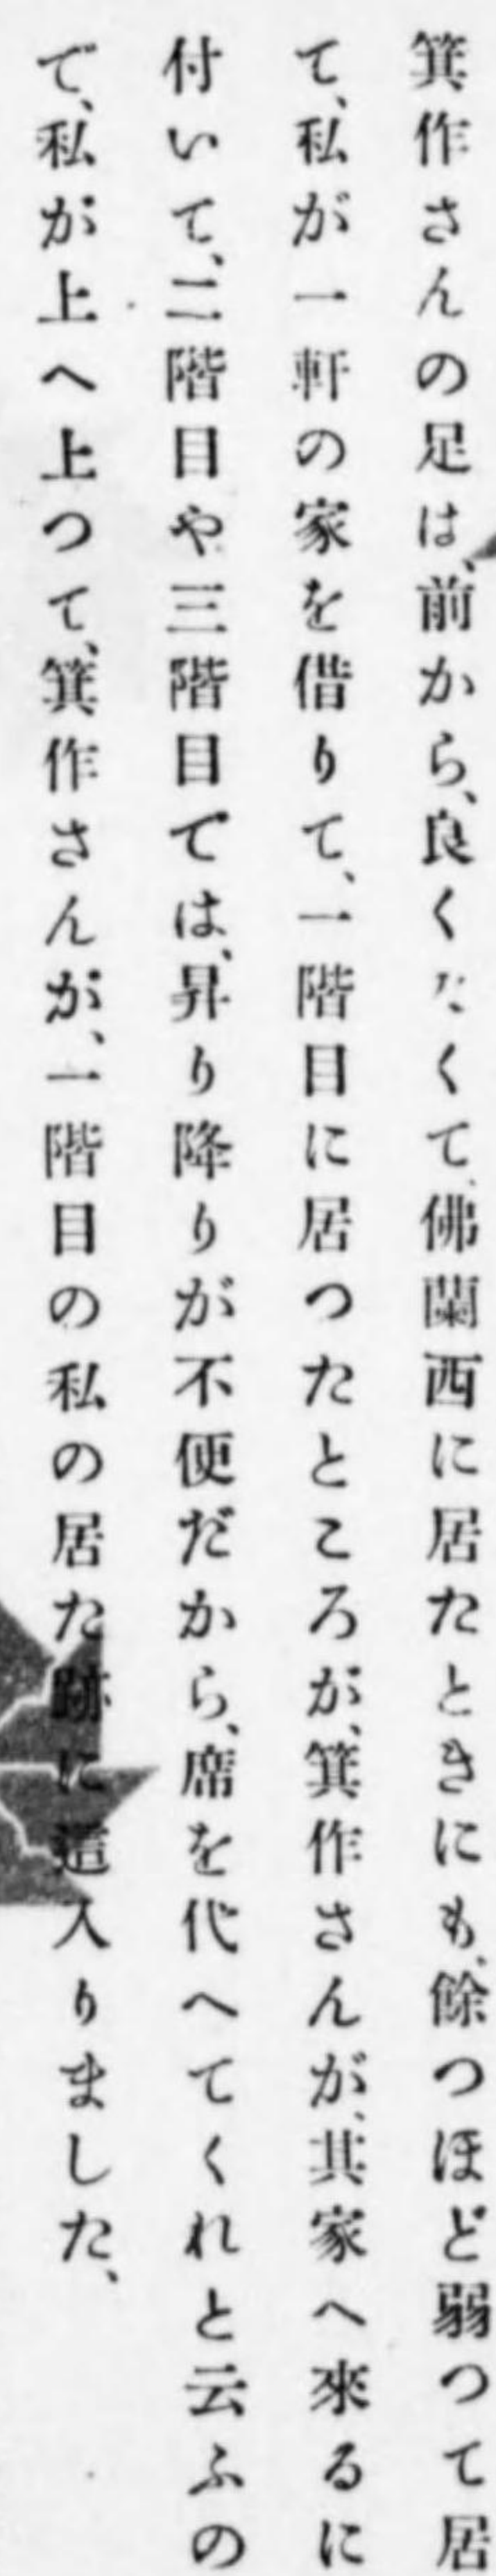 箕作さんの足は、前から、良くなくて、佛蘭西に居たときにも、餘つほど弱つて居
て、私が一軒の家を借りて、一階目に居つたところが、箕作さんが、其家へ來るに
付いて、二階目や三階目では、昇り降りが不便だから、席を代へてくれと云ふの
で、私が上へ上つて、箕作さんが、一階目の私の居た跡に這入りました、